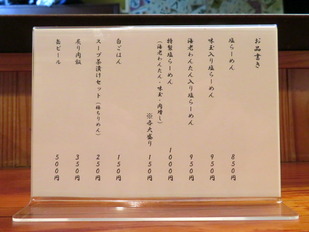 お品書き
塩らーめん 850円
味玉入り塩らーめん 950円
海老わんたん入り塩らーめん 950円
特製塩らーめん 1000円
(海老わんたん・味玉・肉増し)
※各大盛り 150円
白ごはん 150円
スープ茶漬けセット(梅ちりめん) 250円
炙り肉飯 350円
缶ビール 500円